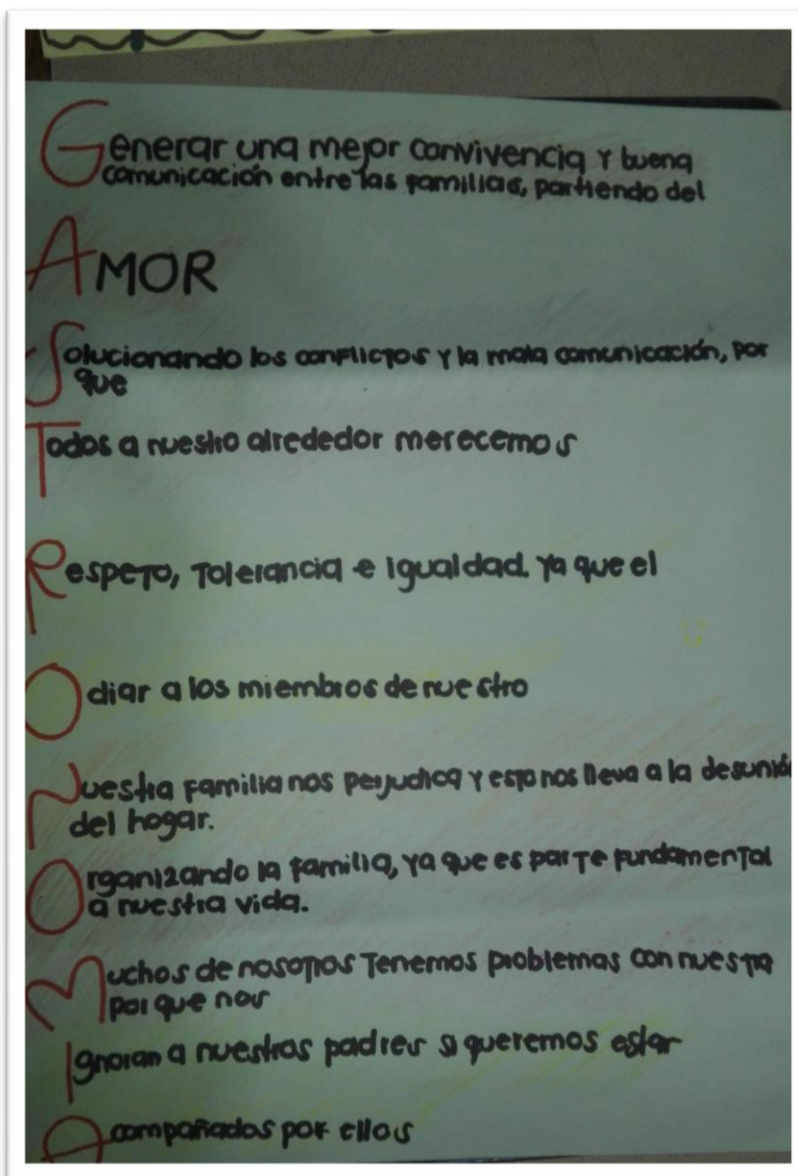 Generar una mejor convivencia y buena
comunicación entre las familias, partiendo del
AMOR
Solucionando los conflictos y la mala comunicación, por
que
Todos a nuestro alrededor merecemos
Respeto, Tolerancia e igualdad. Ya que el
Odiar a los miembros de nuestro
Nuestra familia nos perjudica y esto nos lleva a la desunión
del hogar.
Organizando la familia, ya que es parte fundamental
a nuestra vida.
Muchos de nosotros Tenemos problemas con nuestra
por que nos
Ignoran a nuestros padres si queremos estar
Acompañados por ellos